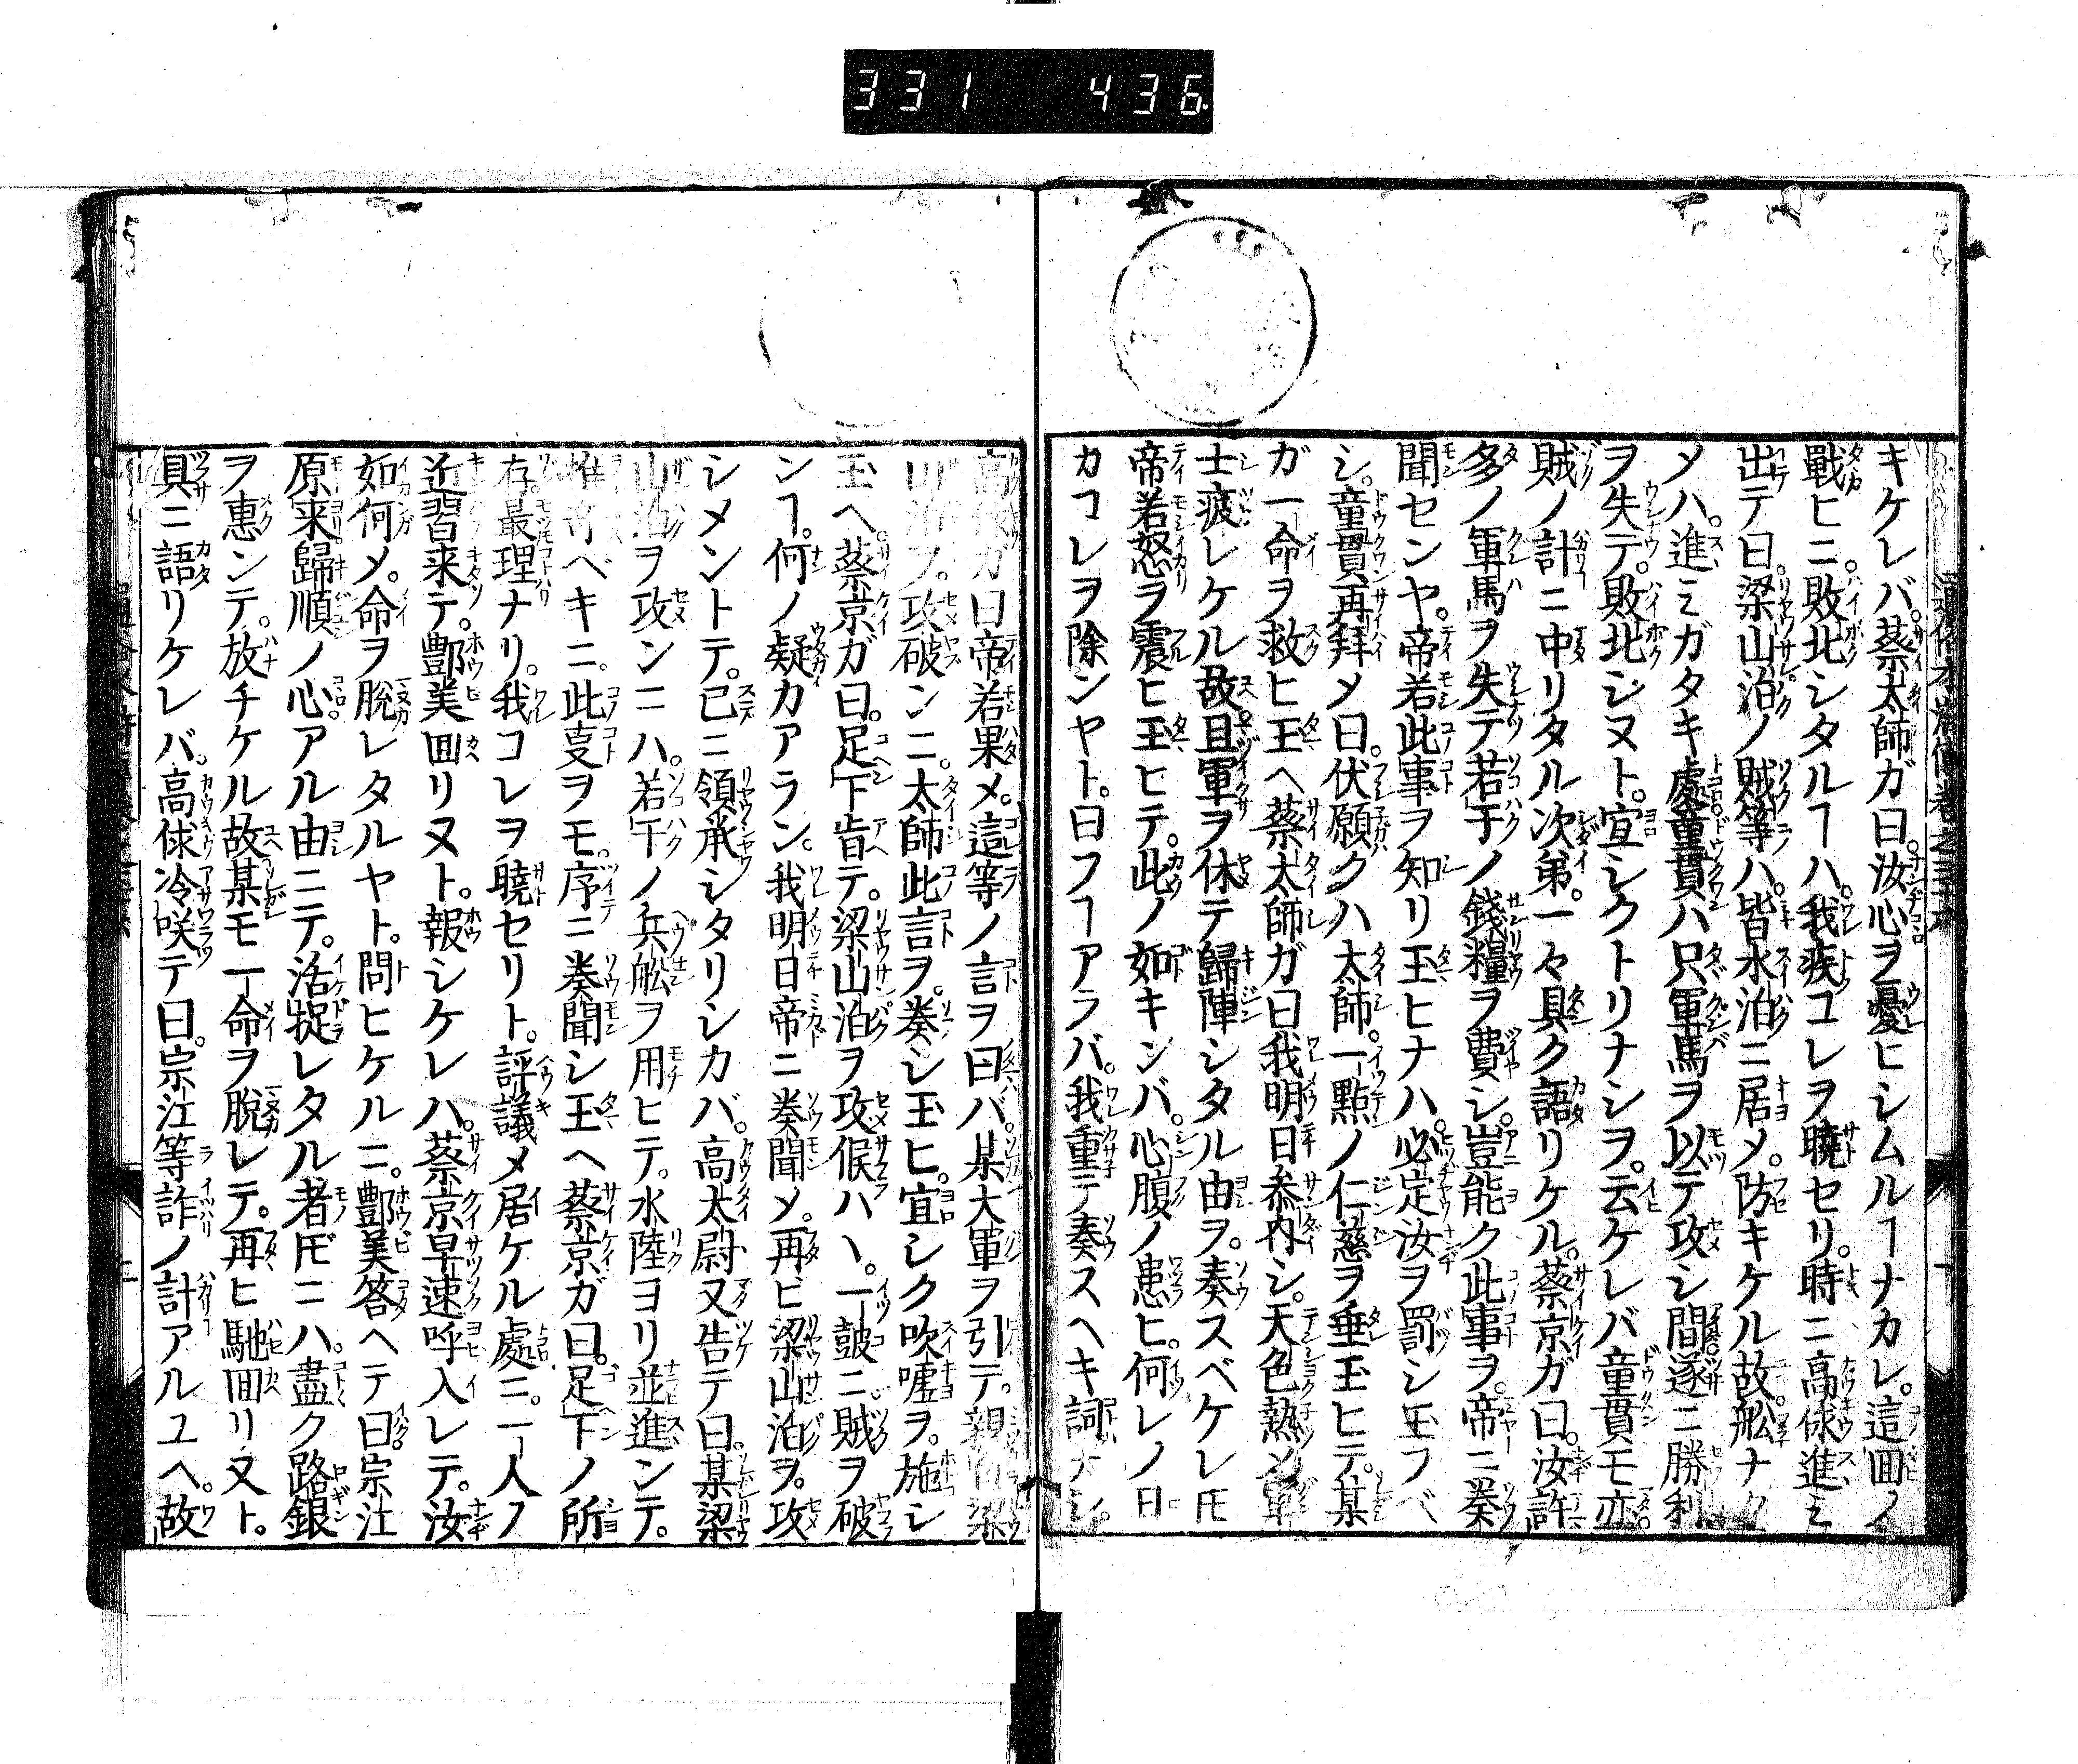 331 436
キケレバ。蔡太師ガ曰。汝心ヲ憂ヒシムルヿナカレ。這回ノ
戰ヒニ。敗北シタルヿハ。我疾コレヲ曉セリ。時ニ高俅進ミ
出テ曰。梁山泊ノ賊等ハ。皆水泊ニ居メ。防キケル故。舩ナク
メハ。進ミガタキ處。童貫ハ只軍馬ヲ以テ攻シ間。遂ニ勝利
ヲ失テ。敗北シヌト。宜シクトリナシヲ。云ケレバ童貫モ亦
賊ノ計ニ中リタル次第。一々具ク語リケル。蔡京ガ曰。汝許
多ノ軍馬ヲ失テ若于ノ錢糧ヲ費シ。豈能ク此事ヲ。帝ニ奏
聞センヤ。帝若此事ヲ知リ玉ヒナハ。必定汝ヲ罰シ玉フベ
シ。童貫再拜メ曰。伏願クハ太師。一點ノ仁慈ヲ垂玉ヒテ。某
ガ一命ヲ救ヒ玉ヘ蔡太師ガ曰我明日参内シ。天色熱ソ軍
士疲レケル故。且軍ヲ休テ歸陣シタル由ヲ。奏スベケレ𪜈
帝若怒ヲ震ヒ玉ヒテ。此ノ如キンバ。心腹ノ患ヒ。何レノ日
カコレヲ除ンヤト。曰フヿアラバ。我重テ奏スヘキ詞ナシ。
高俅ガ曰帝若果メ。這等ノ言ヲ曰バ。某大軍ヲ引テ。親自梁
山泊ヲ。攻破ンニ。太師此言ヲ。奏シ玉ヒ。宜シク吹嘘ヲ。施シ
玉ヘ。蔡京ガ曰。足下肯テ。梁山泊ヲ攻候ハヽ。一鼓ニ。賊ヲ破
ンヿ。何ノ疑カアラン。我明日帝ニ奏聞メ。再ビ梁山泊ヲ。攻
シメントテ。已ニ領承シタリシカバ。高太尉又告テ曰。某梁
山泊ヲ攻ンニハ。若干ノ兵舩ヲ用ヒテ。水陸ヨリ並進ンテ。
推寄ベキニ。此叓ヲモ。序ニ奏聞シ玉ヘ蔡京ガ曰。足下ノ所
存。最理ナリ。我コレヲ曉セリト。評議メ居ケル處ニ。一人ノ
近習来テ。酆美回リヌト。報シケレハ。蔡京早速呼入レテ。汝
如何メ。命ヲ脱レタルヤト。問ヒケルニ。酆美答ヘテ曰。宗江
原来歸順ノ心アル由ニテ。活捉レタル者𪜈ニハ。盡ク路銀
ヲ惠ンテ。放チケル故。某モ一命ヲ脱レテ。再ヒ馳回リ又ト。
具ニ語リケレバ。高俅冷咲テ曰。宗江等詐ノ計アルユヘ。故